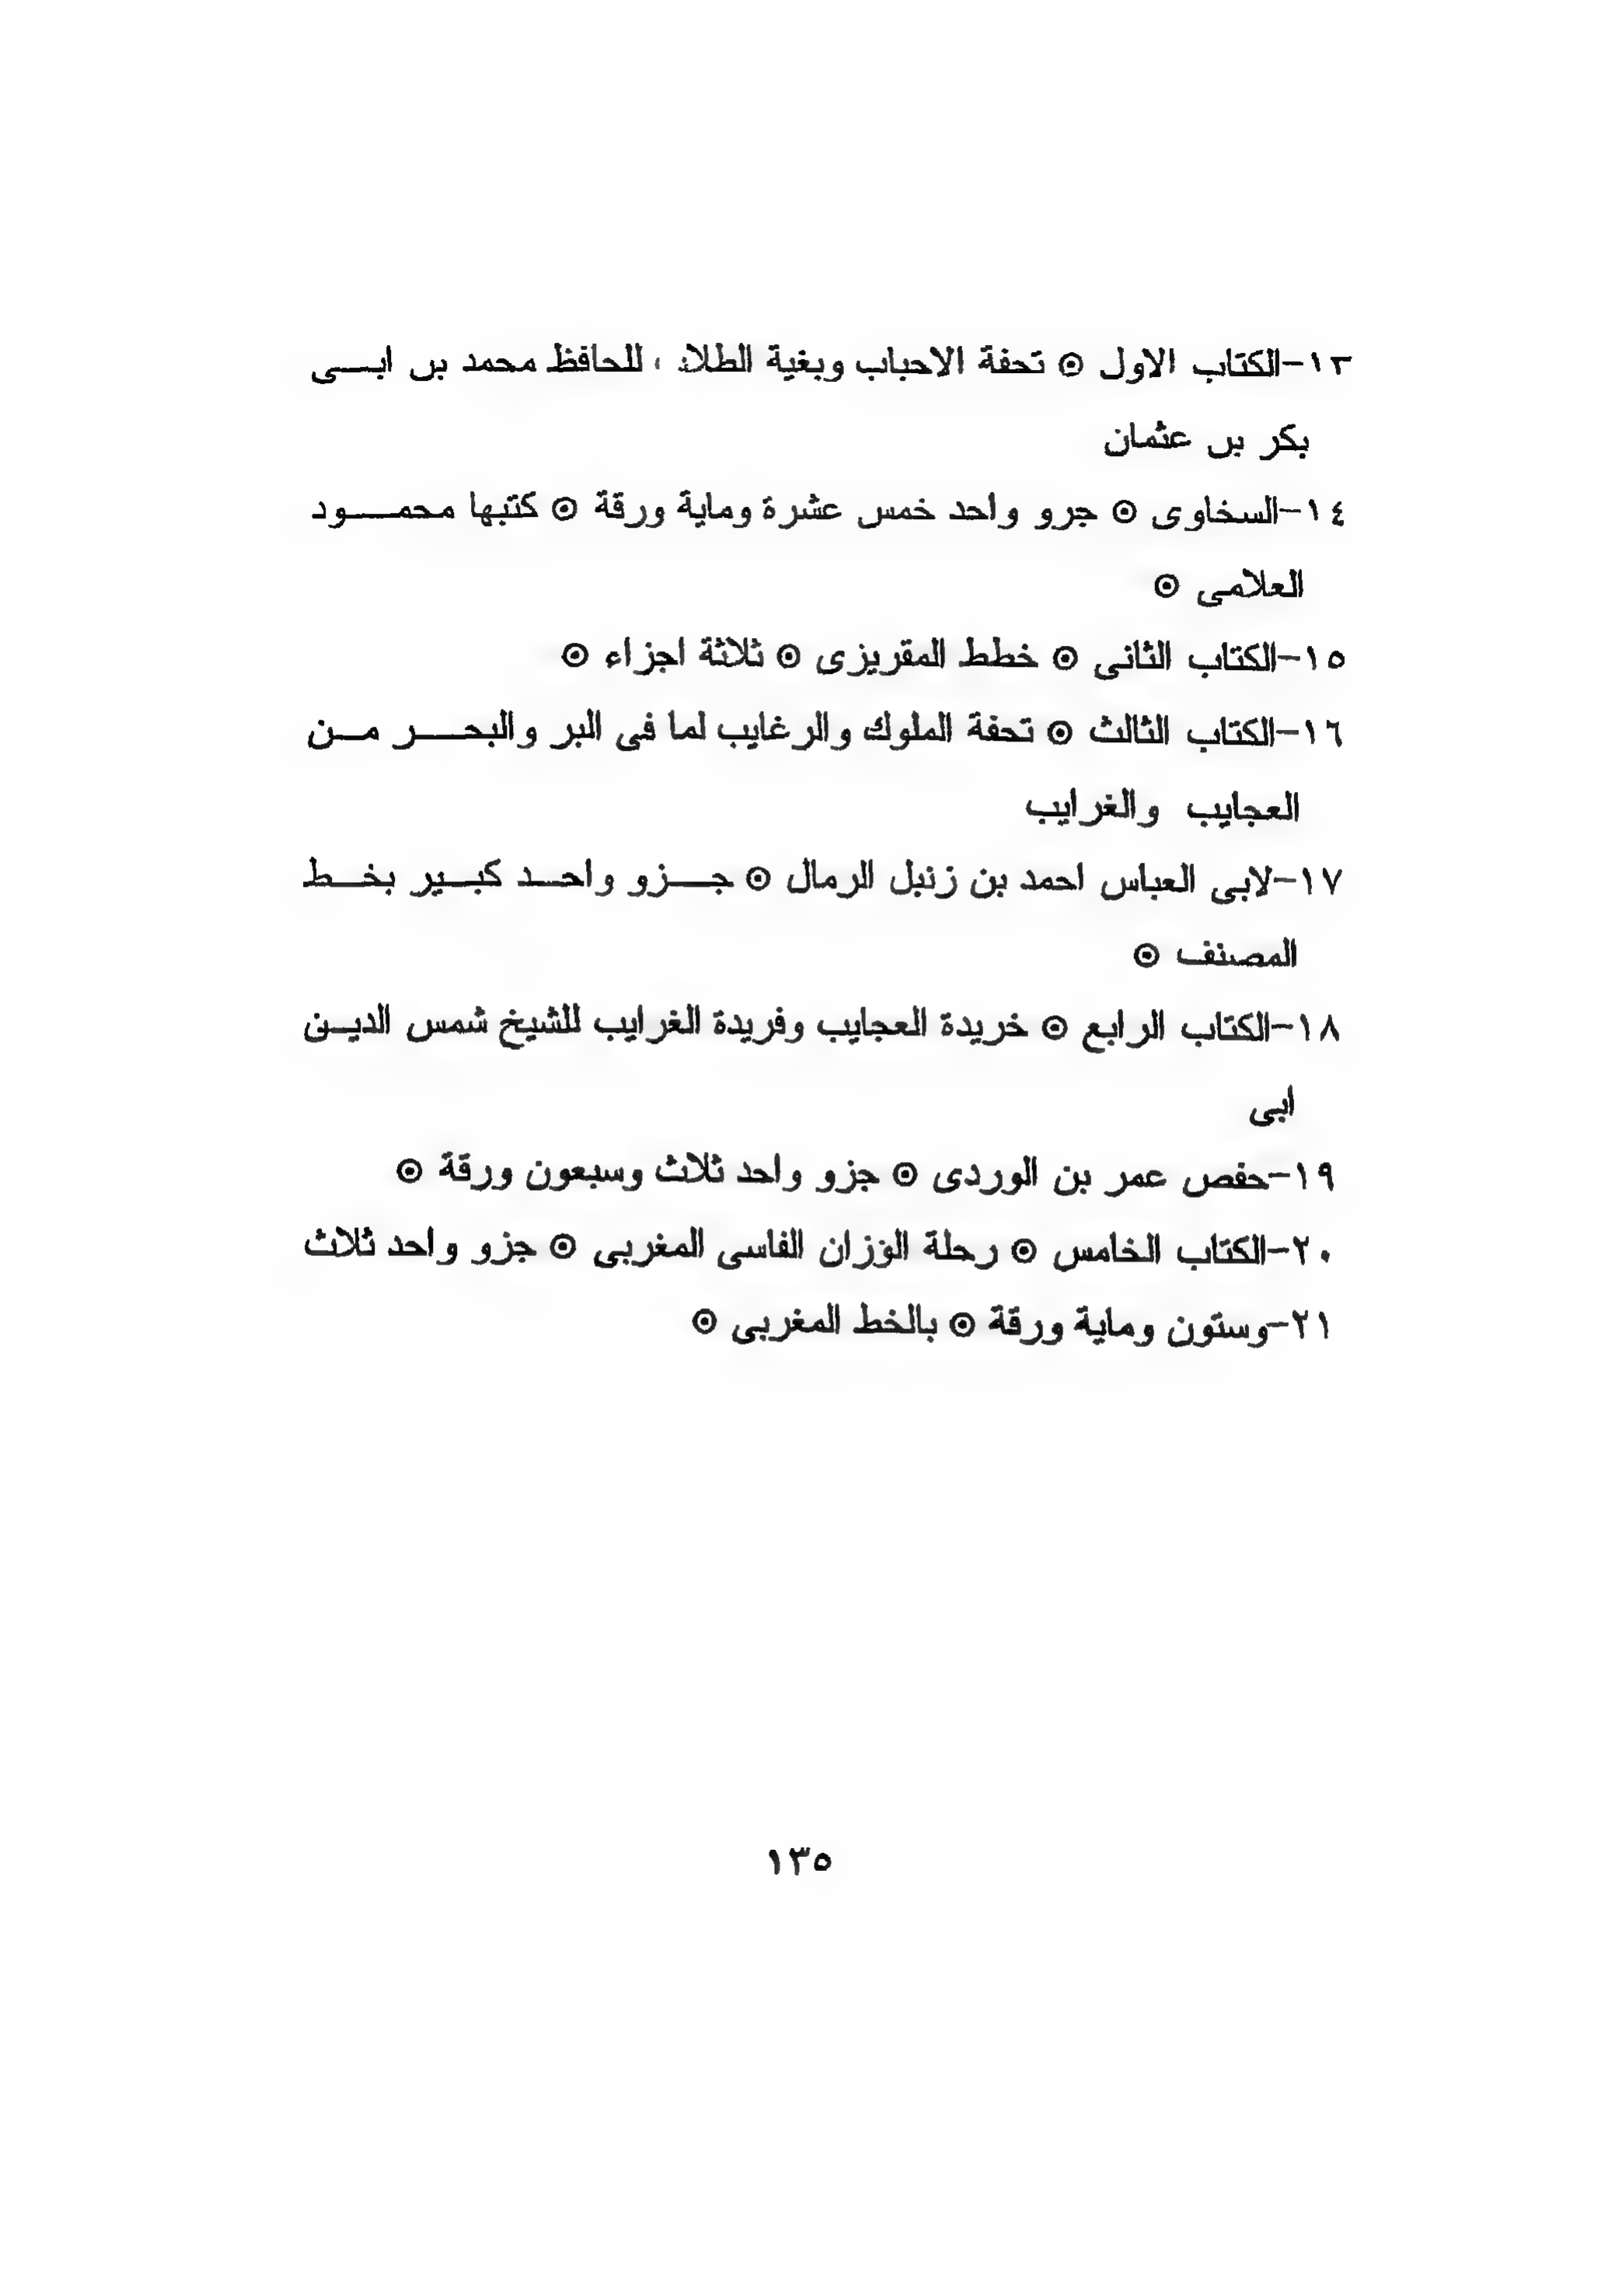 ١٣-الكتاب الاول ⊙ تحفة الاحباب وبغية للحافظ محمد بن ابــى
بكر بن عثمان
١٤-السخاوى ⊙ جرو واحد خمس عشرة وماية ورقة ⊙ كتبها محمــود
العلامى ⊙
١٥-الكتاب الثانى ⊙ خطط المقريزى ⊙ ثلاثة اجزاء ⊙
١٦-الكتاب الثالث ⊙ تحفة الملوك والرغايب لما فى البر والبحــر مــن
العجايب والغرايب
١٧-لابى العباس احمد بن زنبل الرمال ⊙ جــزو واحــد كبــير بخــط
المصنف ⊙
١٨-الكتاب الرابع ⊙ خريدة العجايب وفريدة الغرايب للشيخ شمس الديــن
ابى
١٩-حفص عمر بن الوردى ⊙ جزو واحد ثلاث وسبعون ورقة ⊙
٢٠-الكتاب الخامس ⊙ رحلة الوزان الفاسى المغربى ⊙ جزو واحد ثلاث
٢١-وستون وماية ورقة ⊙ بالخط المغربى ⊙
١٣٥